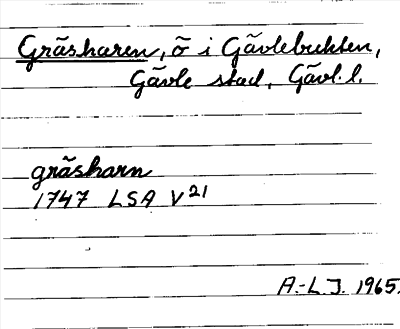 Gräsharen, ö i Gävlebukten,
Gävle stad, Gävl.l.
gräsharn
1747 LSA V21
A.-L.J. 1965.